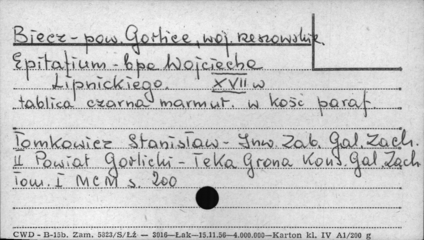 Biecz - pow. Gorlice, woj. rzeszowskie
Epitafium - bpa Wojciecha
Lipnickiego. XVII w
tablica czarna marmur. w kość paraf.
Tomkowicz Stanisław - Inw. Zab. Gal. Zach.
II Powiat Gorlicki - Teka Grona Kons. Gal. Zach
Tom. I MCM s. 200
CWD - B-15b. Zam. 5323/S/Łż — 2016—Łak—15.11.56—4.000.000—Karton kl. IV A1/200 g